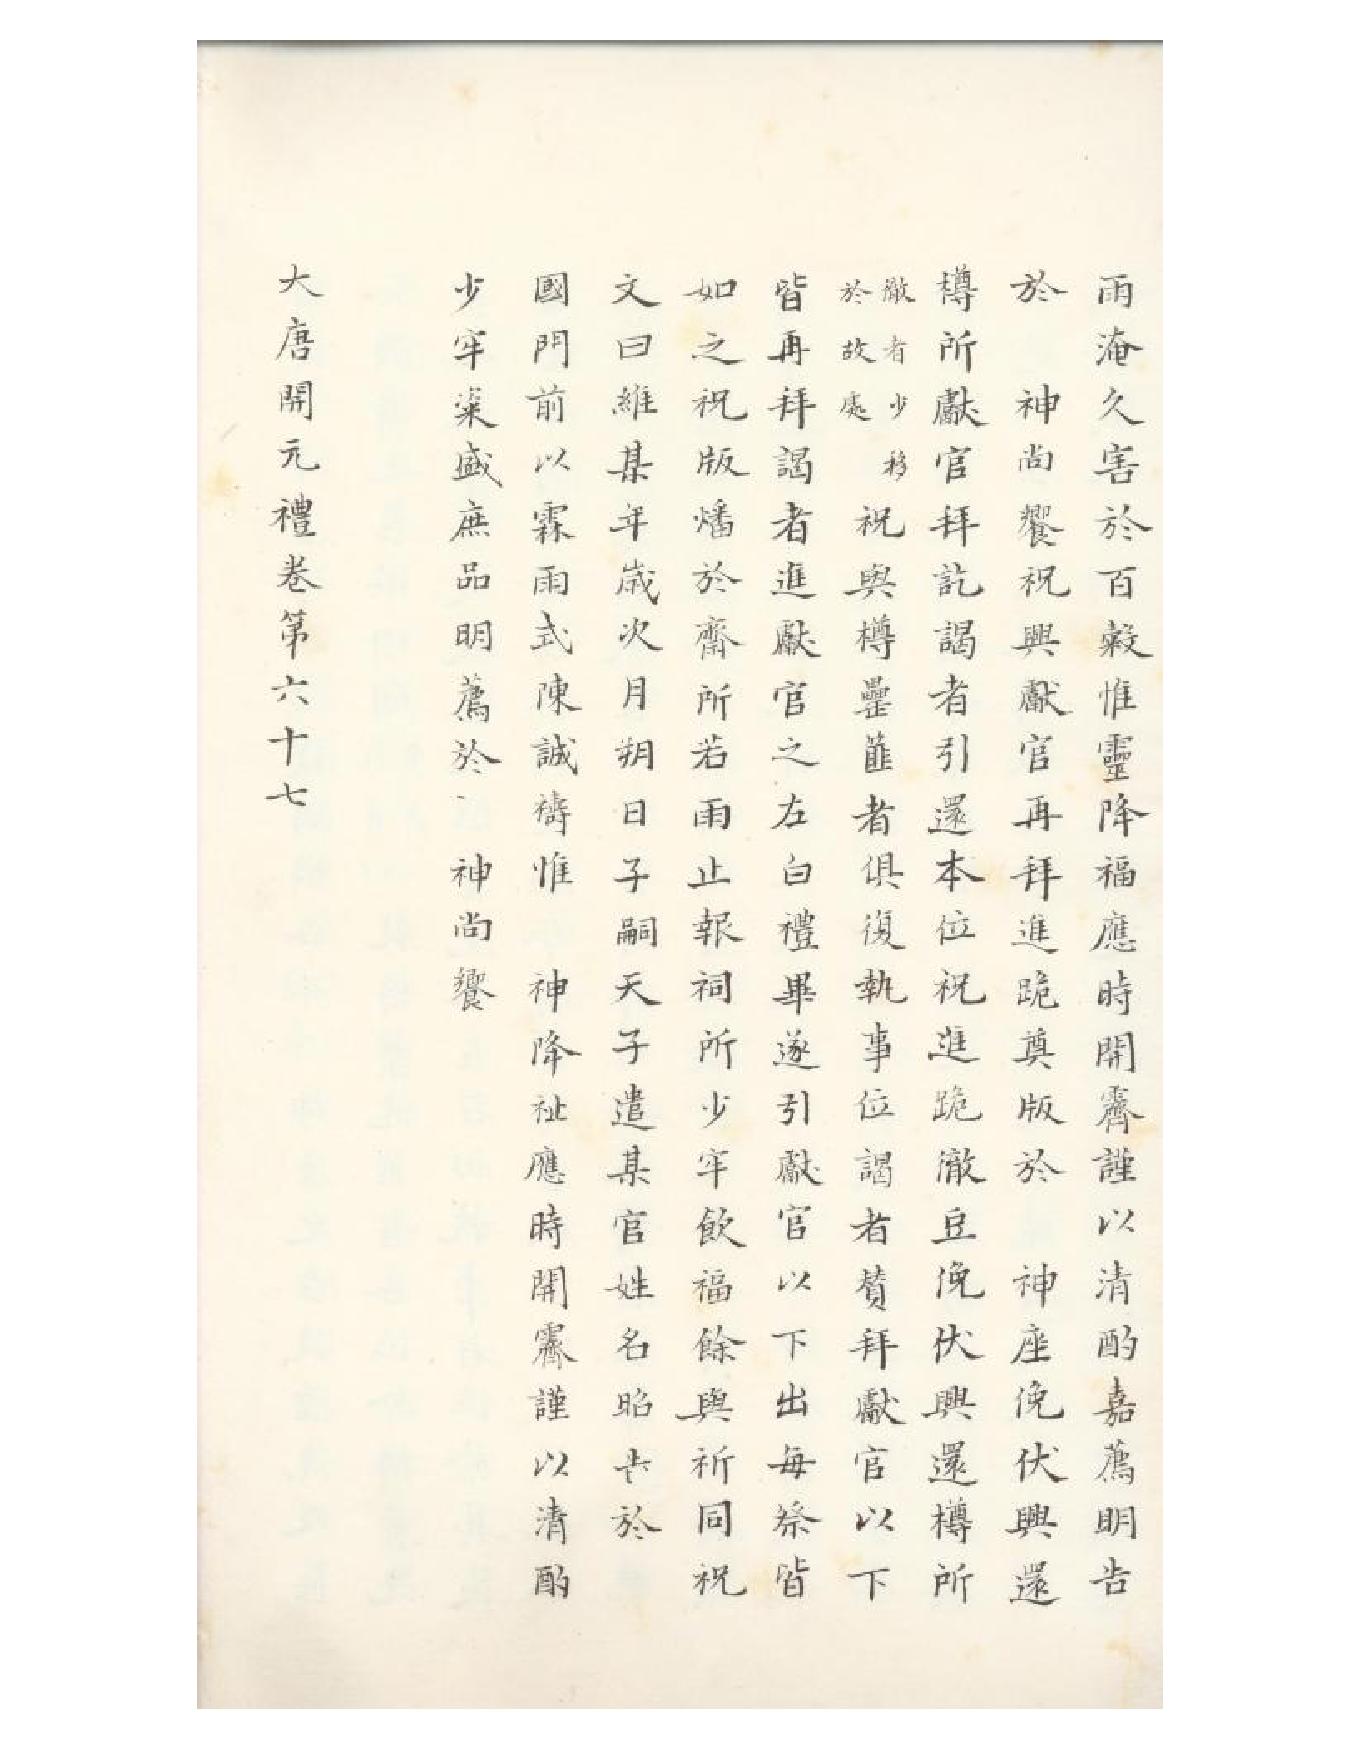 雨淹久害於百穀惟靈降福應時開霽謹以清酌嘉薦明告
於　神尚饗祝興獻官再拜進跪奠版於　神座俛伏興還
樽所獻官拜訖謁者引還本位祝進跪徹豆俛伏興還樽所
徹者少移
於故處
祝與樽罍篚者俱復執事位謁者贊拜獻官以下
皆再拜謁者進獻官之左白禮畢遂引獻官以下出每祭皆
如之祝版燔於齋所若雨止報祠所少牢飲福餘與祈同祝
文曰維某年歲次月朔日子嗣天子遣某官姓名昭告於
國門前以霖雨式陳誠禱惟　神降祉應時開霽謹以清酌
少牢粢盛庶品明薦於　神尚饗
大唐開元禮卷第六十七